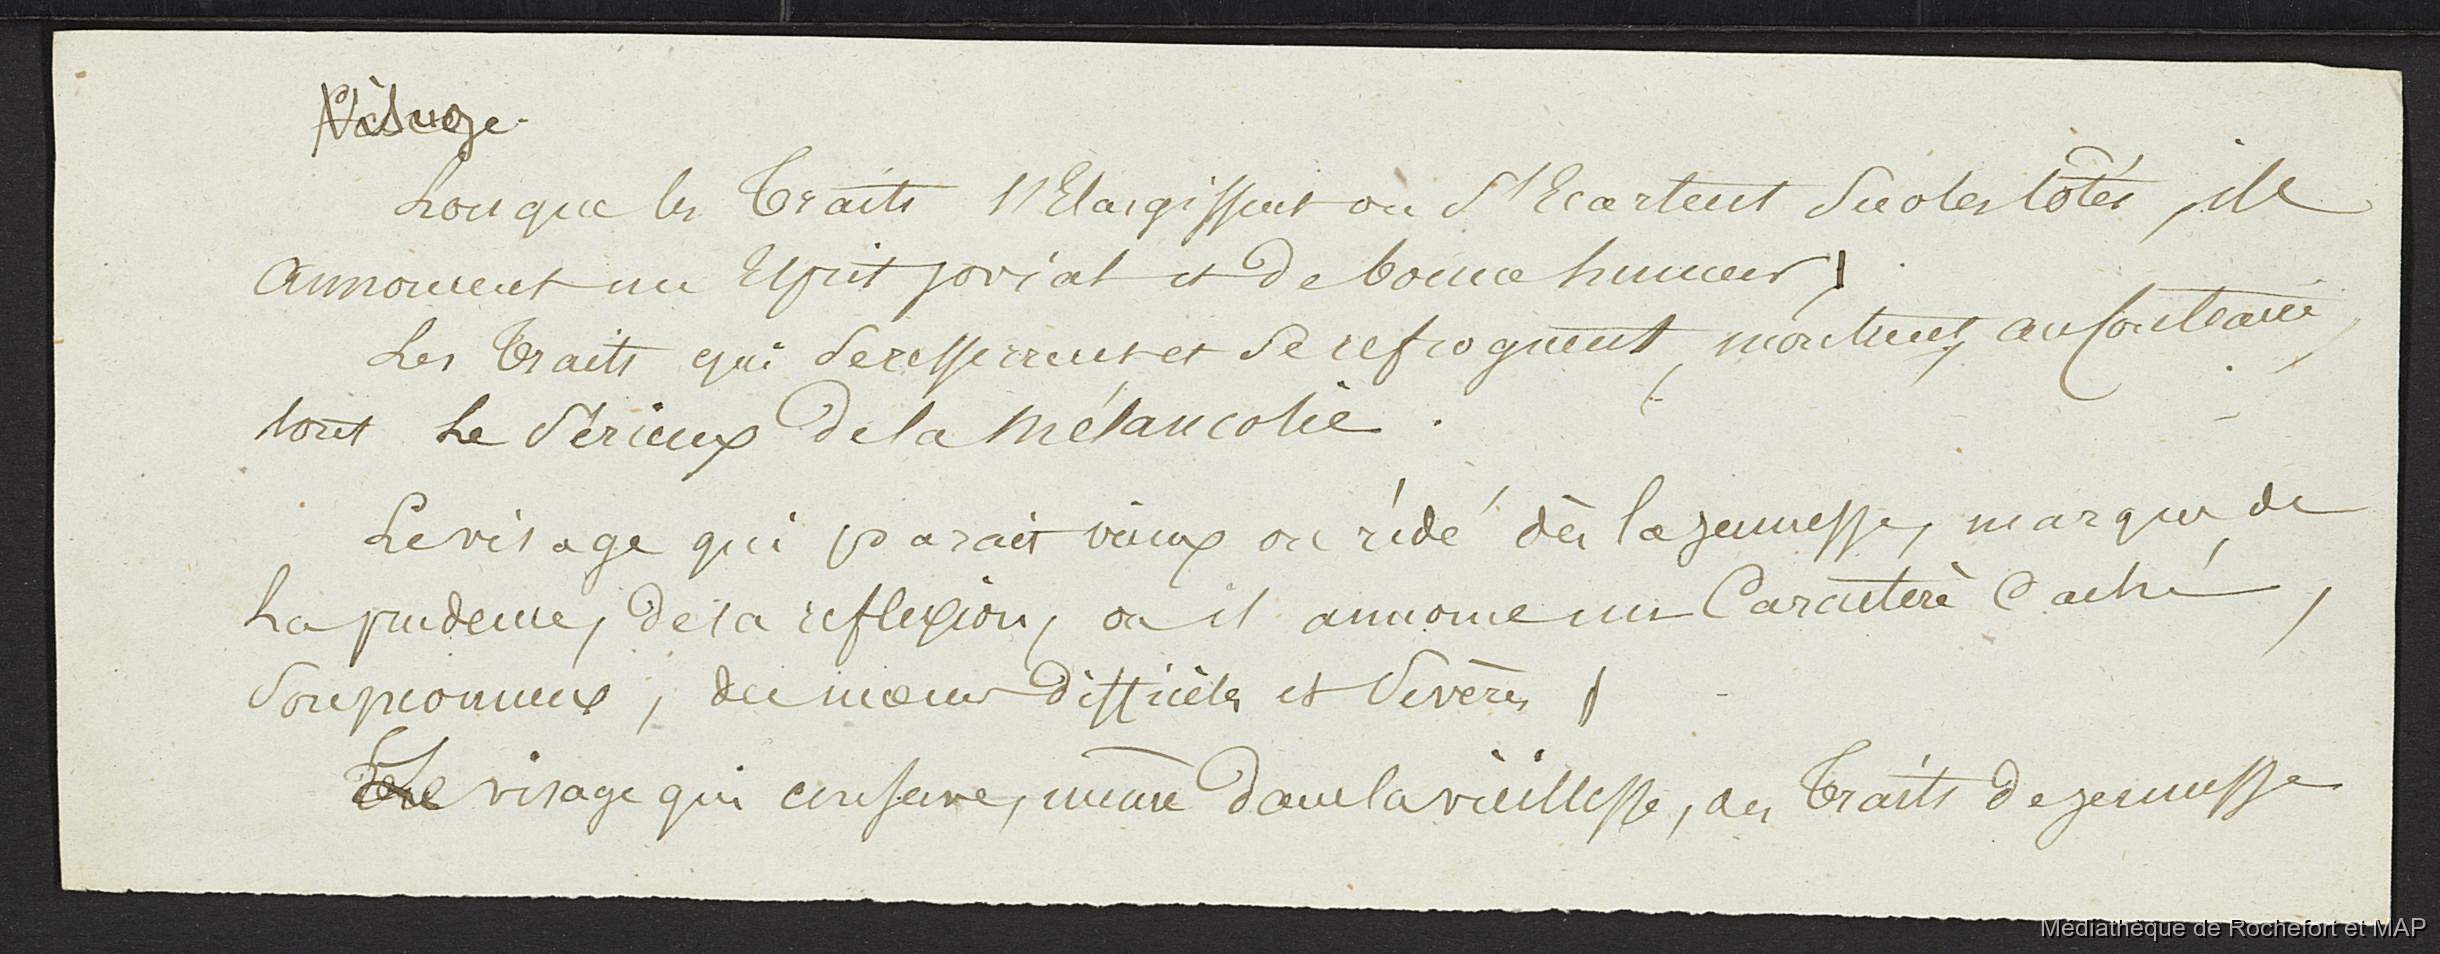 Visage.
Lorsque les Traits s'Elargissent ou s'Ecartent sur les Cotés, ils
annoncent un Esprit jovial et de bonne humeur,
Les Traits qui se resserrent et se refrognent, montrent, au Contraire,
tout Le Sérieux de la Mélancolie.
Le visage qui parait vieux ou ridé dès la jeunesse, marque, de
La prudence, de la reflexion, ou il annonce un Caractère Caché,
Soupconneux, des mœurs difficiles et Sévères,
Le visage qui conserve, même dans la vieillesse, des Traits de jeunesse
Médiathèque de Rochefort et MAP